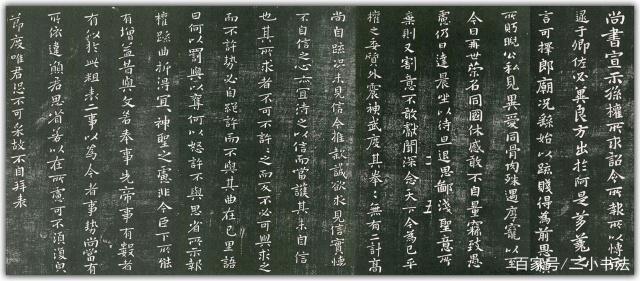 尚書宣示孫權所求詔令所報所以博示
逮于卿佐必冀良方出於阿是芻蕘之
言可擇郎廟況繇始以疏賤得為前恩橫
所盼睨公私見異愛同骨肉殊遇厚寵以至
今日再世榮名同國休慼敢不自量竊致愚
慮仍日達晨坐以待旦退思鄙淺聖意所
棄則又割意不敢獻聞深念天下今為已平
權之委質外震神武度其拳拳無有二計高
尚自疏況未見信今推款誠欲求見信實懷
不自信之心亦宜待之以信而當護其未自信
也其所求者不可不許許之而反不必可與求之
而不許勢必自絕許而不與其曲在己里語
曰何以罰與以奪何以怒許不與思省所示報
權疏曲折得宜宜神聖之慮非今臣下所能
有增益昔與文若奉事先帝事有數者
有似於此粗表二事以為今者事勢尚當有
所依違願君思省若以在所慮可不須復貌
節度唯君恐不可采故不自拜表
百家号/二小书法